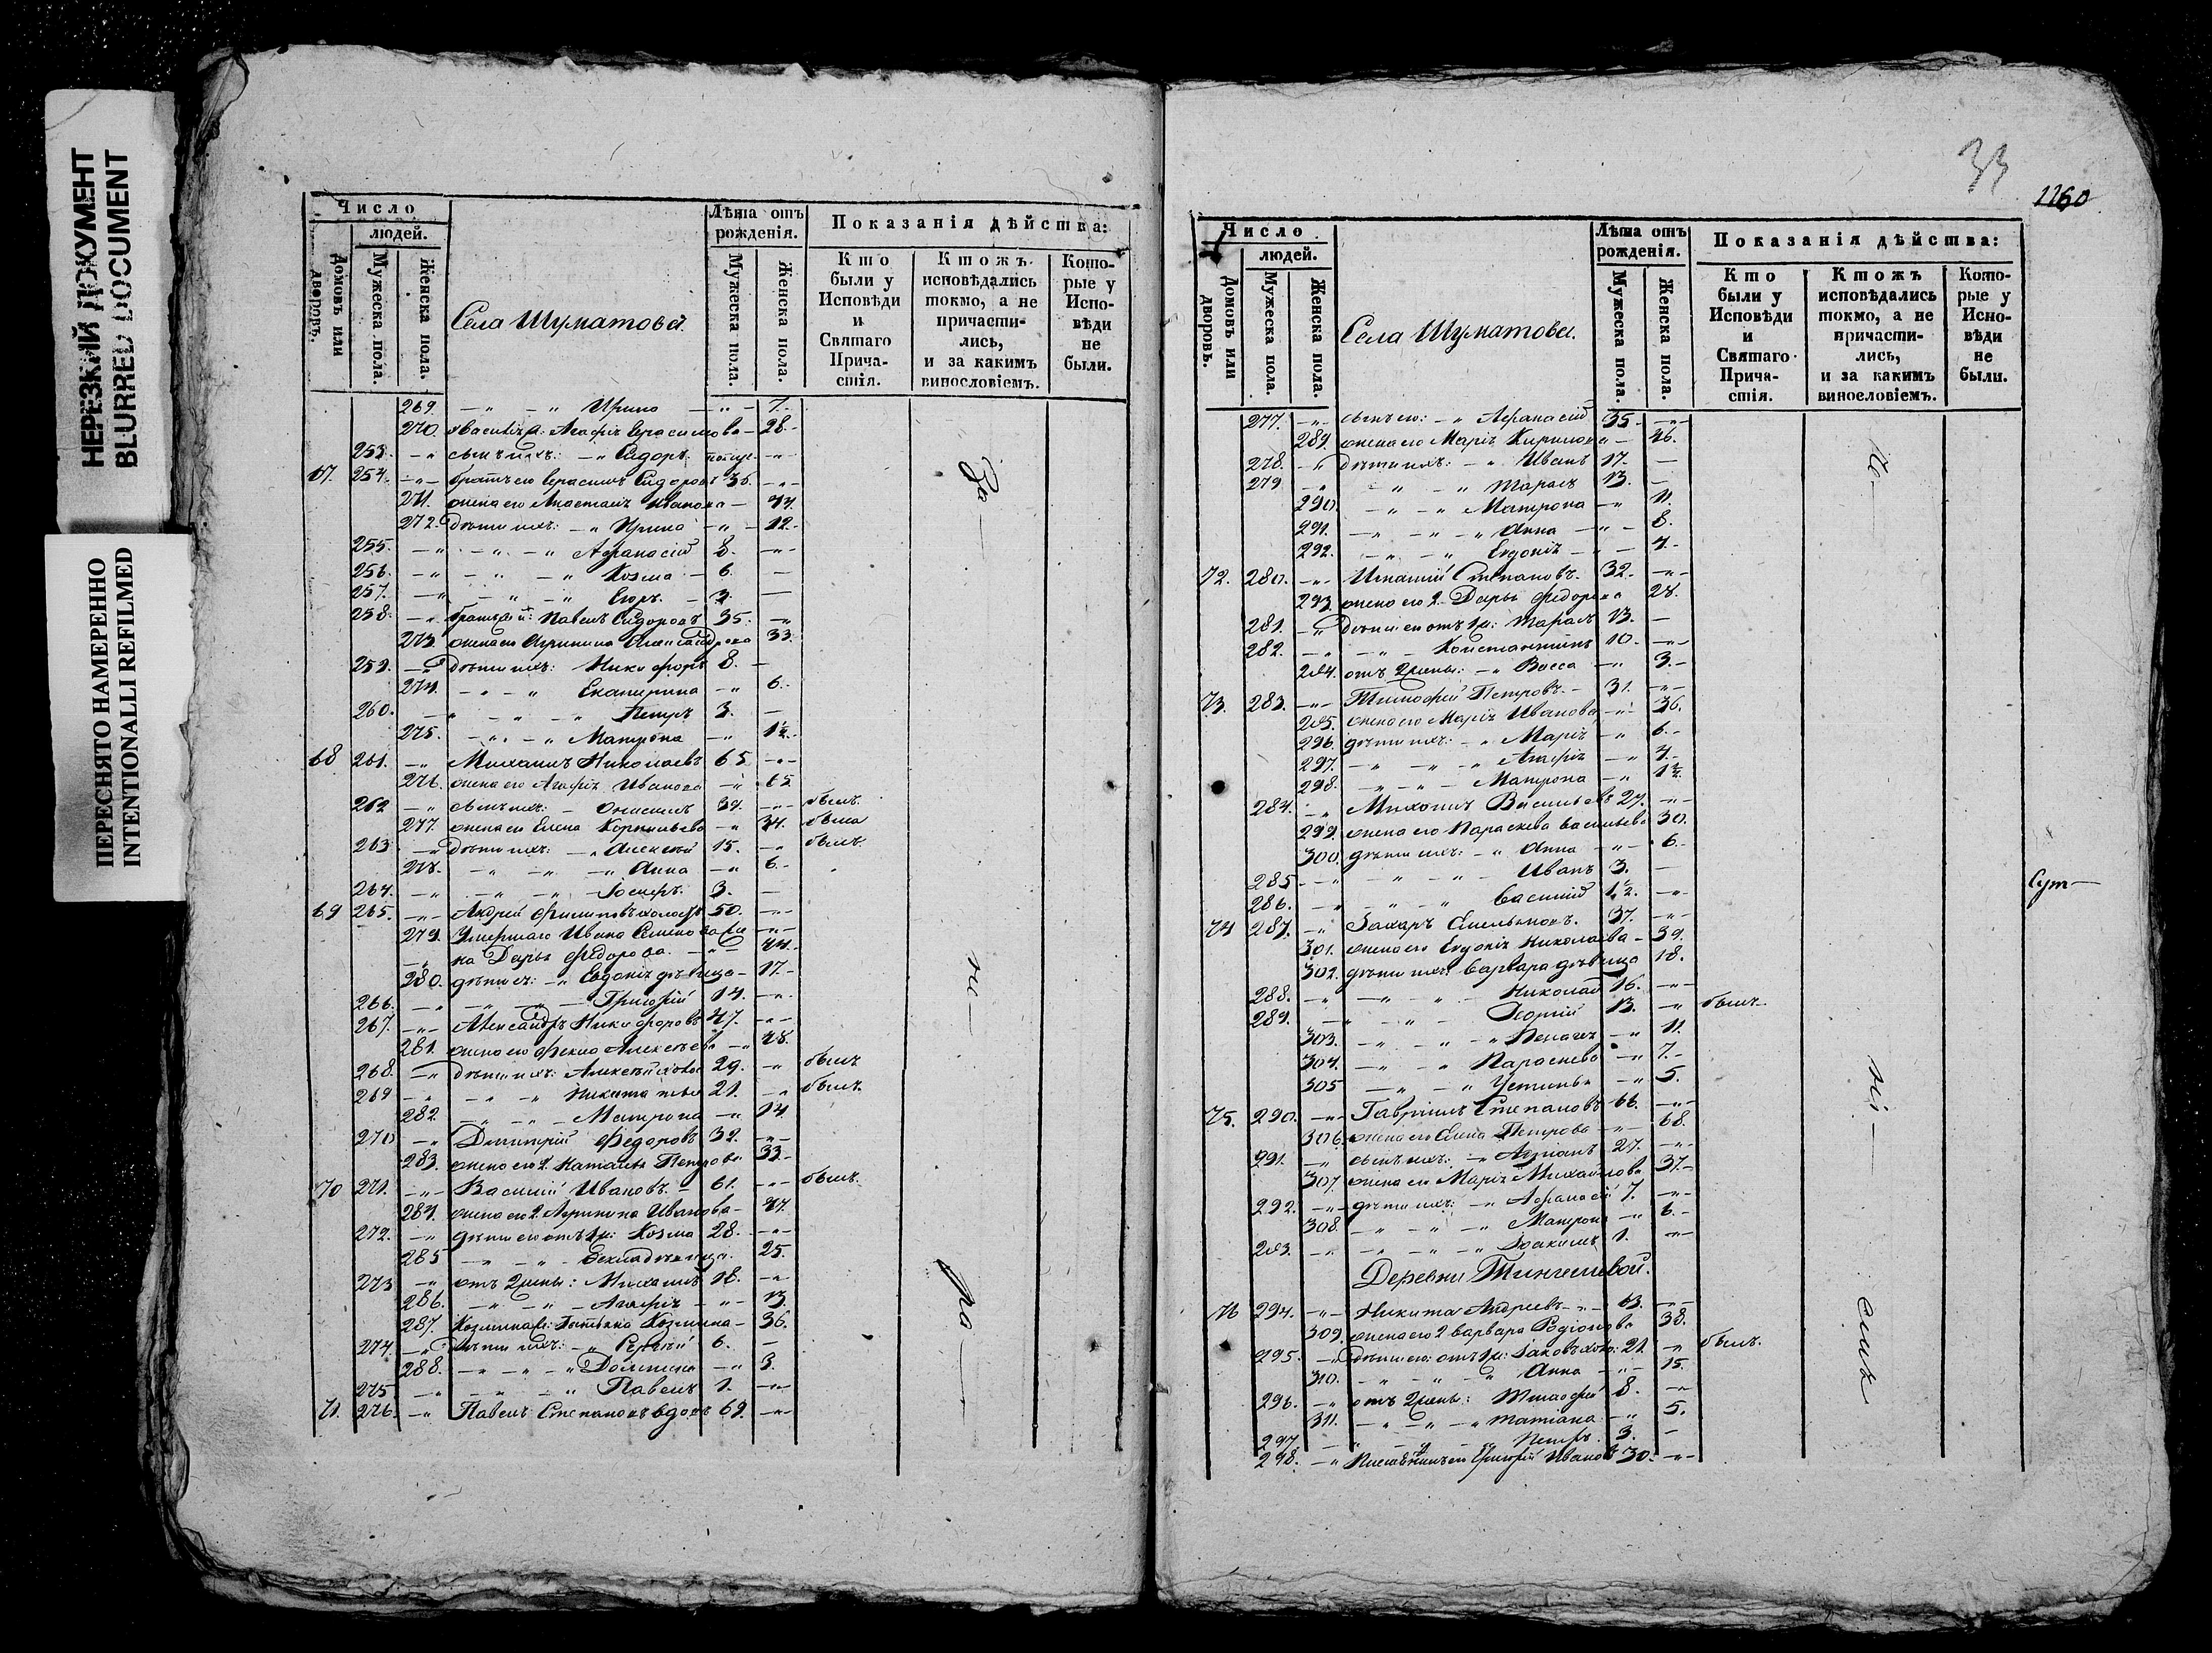 НЕРЕЗКИЙ ДОКУМЕНТ
BLURRED DOCUMENT
ПЕРЕСНЯТО НАМЕРЕННО
INTENTIONALLI REFILMED
Число
людей.
Домовъ или дворовъ.
Мужеска пола.
Женска пола.
Села Шуматова.
Лѣта отъ рожденія.
Мужеска пола.
Женска пола.
Показанія дѣйства:
Кто были у Исповѣди и Святаго Прича- стія.
Ктожъ исповѣдались токмо, а не причасти- лись, и за какимъ винословіемъ.
Кото- рые у Испо- вѣди не были.
269. Ирина 7.
270. Агафія Герасимова 28.
253. сынъ ихъ: Сидоръ
67. 254. братъ его Герасимъ Сидоровъ 36.
271. жена его Анастасія Иванова 44.
272. дѣти ихъ: Ирина 12.
255. Афанасій 8.
256. Козма 6.
257. Егоръ 3.
258. Павелъ Сидоровъ 35.
273. жена его Агрипина Александрова 33.
259. дѣти ихъ: Никифоръ 8.
274. Екатерина 6.
260. Петръ 3.
275. Матрона 1½.
68 261. Михаилъ Николаевъ 65.
276. жена его Агафія Иванова 65.
262 сынъ ихъ: Онисимъ 34. былъ.
277. жена его Елена Корнильева 34. была
263. дѣти ихъ: Алексѣй 15. былъ.
278. Анна 6.
264. Іосифъ 3.
69 265. Андрей Филиповъ холостъ 50.
279. Умершаго Ивана Семенова же
на Дарья Федорова. 44.
280. дѣти ея: Евдокія дѣвица 17.
266. Григорій 14.
267. Александръ Никифоровъ 47.
281. жена его Фекла Алексѣева 48.
268. дѣти ихъ: Алексѣй холос 29. былъ
269 Никита 21. былъ.
282. Матрона 14
270 Дмитрій Федоровъ 32.
283. жена его 2. Наталья Петрова 33.
70 271. Василій Ивановъ. 61. былъ.
284. жена его 2. Агрипина Иванова 47.
272. дѣти его отъ 1й: Козма 28.
285 Фекла дѣвица. 25.
273 отъ 2 жены: Михаилъ 18.
286. Агафія 13
287. Козмина ж: Татьяна Козмина 36.
274. дѣти ихъ: Сергѣй 6.
288. Домника 3.
275 Павелъ 1.
71. 276. Павелъ Степановъ вдовъ 69.
За
не
ра
33
1160
Число
людей.
Домовъ или дворовъ.
Мужеска пола.
Женска пола.
Села Шуматова.
Лѣта отъ рожденія.
Мужеска пола.
Женска пола.
Показанія дѣйства:
Кто были у Исповѣди и Святаго Прича- стія.
Ктожъ исповѣдались токмо, а не причасти- лись, и за какимъ винословіемъ.
Кото- рые у Испо- вѣди не были.
277. сынъ его: Афанасій 35.
289. жена его Марія Кирилова 46.
278. дѣти ихъ: Иванъ 17.
279 Тарасъ 13.
290. Матрона 11.
291. Анна 8.
292. Евдокія 4.
72. 280. Игнатій Степановъ. 32.
293. жена его 2. Дарья Федорова 28.
281. дѣти его отъ 1й: Тарасъ 13.
282. Константинъ 10.
294. отъ 2 жены: Васса 3.
73. 283. Тимофей Петровъ. 31.
295. жена его Марія Иванова 36.
296. дѣти ихъ: Марія 6.
297. Агафія 4.
298. Матрона 1½.
284. Михаилъ Васильевъ 27.
299. жена его Параскева Васильева 30.
300. дѣти ихъ: Анна 6.
285. Иванъ 3.
286. Василій 1½.
74 287. Захаръ Емельяновъ. 37.
301. жена его Евдокія Николаева 39.
302. дѣти ихъ: Варвара дѣвица 18.
288. Николай 16.
289. Георгій 13. былъ.
303. Пелагея 11.
304. Параскева 7.
305 Устинья 5.
75. 290. Гавріилъ Степановъ 66.
306. жена его Елена Петрова 68.
291. сынъ ихъ: Адріанъ 27.
307. жена его Марія Михайлова 37.
292. дѣти ихъ: Афанасій 7.
308. Матрона 6.
293. Іоакимъ 1.
Деревни Тингешевой.
76 294. Никита Андреевъ 63.
309. жена его 2 Варвара Родіонова 38.
295. дѣти его: отъ 1й: Іаковъ холо: 21. былъ.
310. Анна 15.
296. отъ 2 жены: Тимофей 8.
311. Татіана 5.
297 Петръ 3.
298. Григорій Ивановъ 30.
Сут